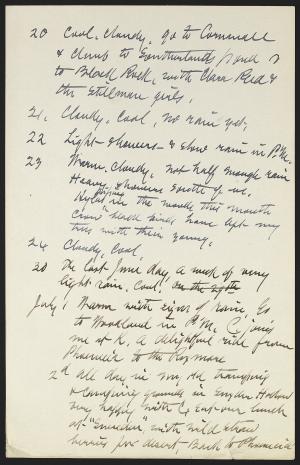 20 Cool, Cloudy, go to Cornwall
& climb to Sutherlands pond &
to Black Rock, with Clara Reed &
the Stillman girls.
21, Cloudy, Cool, no rain yet,
22 Light showers & slow rain in P.M.
23 Warm, Cloudy, not half enough rain
Heavy showers south of us.
in the month this month
birds have left my
trees with their young.
24 Cloudy, Cool,
30 The last June day, a week of very
light rain, Cool, on the 29th
July 1 Warm with signs of rain, Go
to Woodland in P.M. C joins
me at K. A delightful ride from
Phoenicia to the
2d all day in
& Comparing grounds in Snyder Hollow
very happy with C, eat our lunch
at "Smedes" with wild straw
berries for desert, Back to Phoenicia